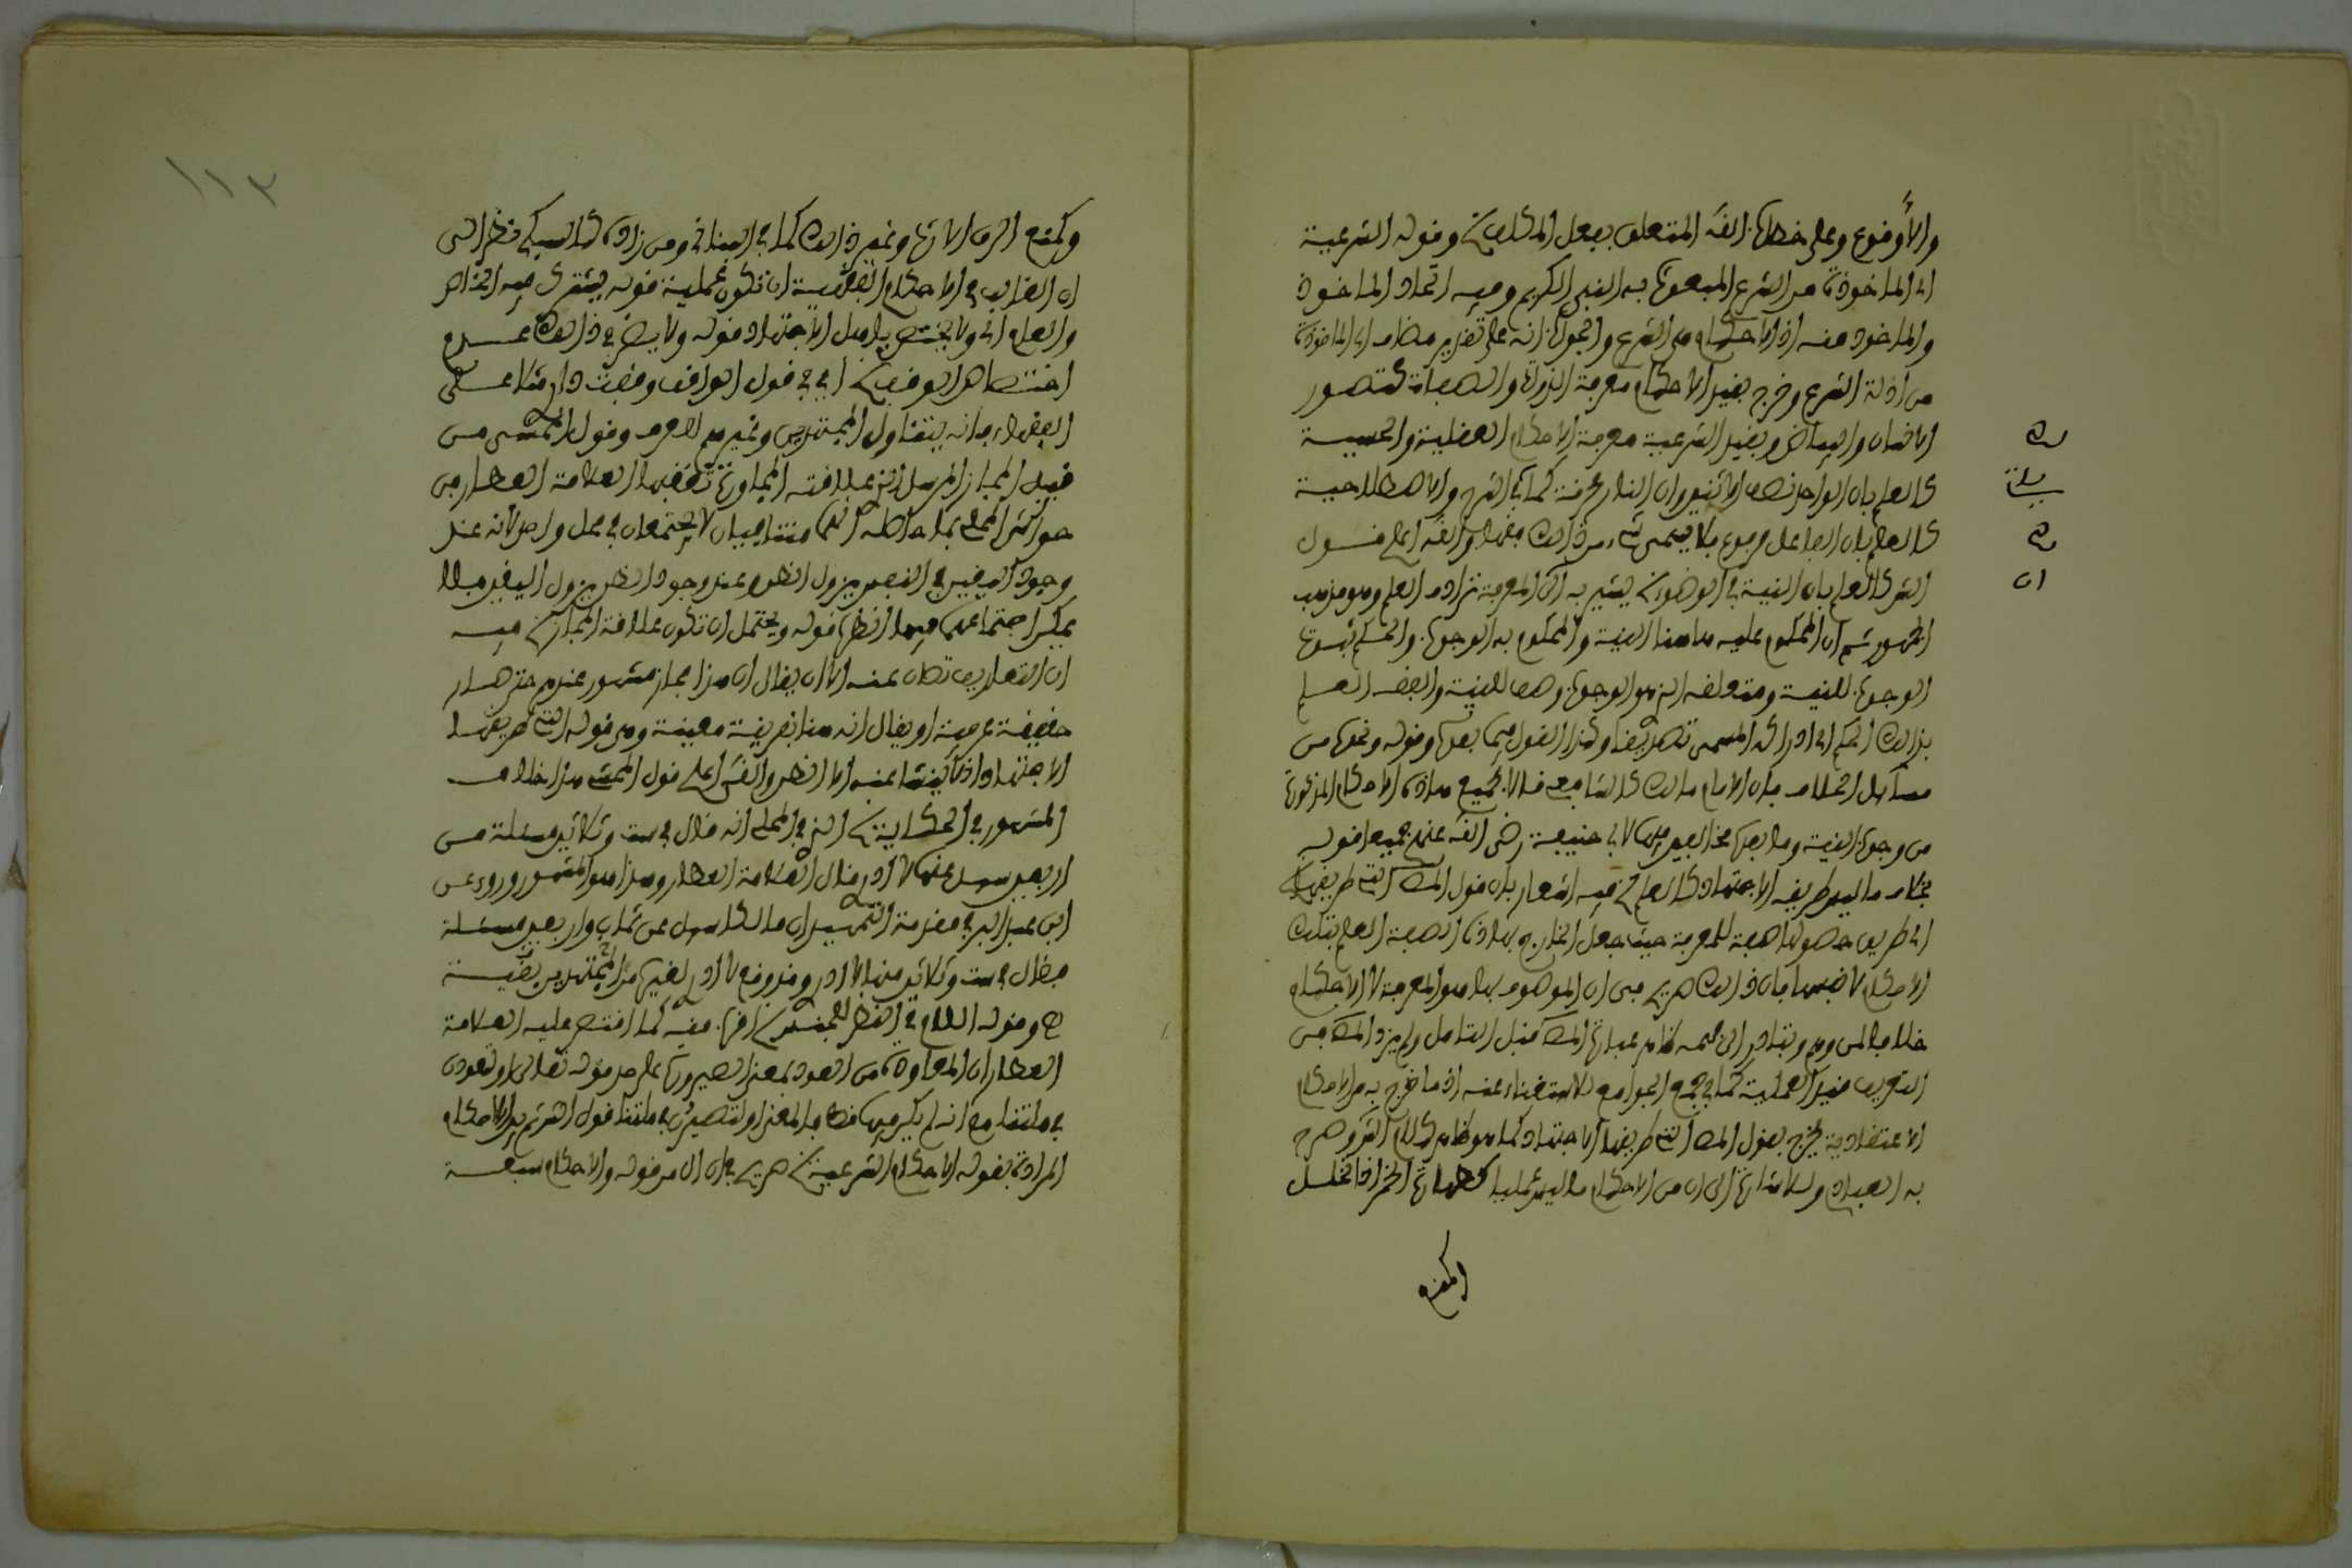 والأوقوع وعلى خطاب الله المتعلق بفعل المكلفين وقوله الشرعية
اي الماخوذة من الشرع المبعوث به النبي الكريم وفيه اتحاد الماخوذ
والماخوذ منه اذ الاحكام هي الشرع والجواب انه على تقدير مضاف اي الماخوذة
من ادلة الشرع وخرج بقيد الاحكام معرفة الذوات والصفات كتصور
الانسان والبياض وبقيد الشرعية معرفة الاحكام العقلية والحسية
كالعلم بان الواحد نصف الاثنين وان النار محرقة كما في الشرح والاصطلاحية
كالعلم بان الفاعل مرفوع فلا يسمى شيء من ذلك فقها والله اعلم قول
الشرح كالعلم بان النية في الوضوء يشير به الى ان المعرفة ترادف العلم وهو مذهب
الجمهور ثم ان المحكوم عليه هاهنا النية والمحكوم به الوجوب والحكم ثبوت
الوجوب للنية ومتعلقه الذي هو الوجوب وصف للنية والفقه العلم
بذلك الحكم اي ادراكه المسمى تصديقا وكذا القول فيما بعده وقوله ونحو ذلك من
مسائل الخلاف فان الامام مالك كالشافعي قالا بجميع هاذه الاحكام المذكورة
من وجوب النية وما بعدها مخالفين فيها لابي حنيفة رضي الله عنهم جميعا قوله
بخلاف ما ليس طريقه الاجتهاد كالعلم فيه اشعار بان قول المص التي طريقها
اي طريق حصولها صفة للمعرفة حيث جعل الخارج بهاذه الصفة العلم بتلك
الاحكام لا نفسها فان ذلك صريح في ان الموصوف بها هو المعرفة لا الاحكام
خلافا لمن وهم وتبادر الى فهمه ظاهر عبارة المص قبل التامل ولم يزد المص في
التعريف قيد العملية كما في جمع الجوامع للاستغناء عنه اذ ما خرج به من الاحكام
الاعتقادية يخرج بقول المص التي طريقها الاجتهاد كما هو ظاهر كلام الشرح وصرح
به العبادي وللاشارة الى ان من الاحكام ما ليس عمليا كطهارة الخمر اذا تخلل
وكمنع
وكمنع الرق الارث وغير ذلك كما في البناني ومن زاده كالسبكي نظر الى
ان الغالب في الاحكام الفقهية ان تكون عملية قوله يشترك فيه الخاص
والعام اي ولا يختص باهل الاجتهاد قوله ولا يضر في ذلك عدم
اختصاص الوقف اي في قول الواقف وقفت داري مثلا على
الفقهاء فانه يتناول المجتهدين وغيرهم للعرف وقول المحشي من
قبيل المجاز المرسل الذي علاقته المجاورة تعقبها العلامة العطار في
حواشي المحلي بما حاصله انهما متنافيان لا يجتمعان في محل واحد لانه عند
وجود اليقين في النفس يزول الظن وعند وجود الظن يزول اليقين فلا
يمكن اجتماعهما فيها انظره قوله ويحتمل ان تكون علاقة المجاز فيه
ان التعاريف تصان عنه الا ان يقال ان هذا مجاز مشهور عندهم حتى صار
حقيقة عرفية او يقال انه هنا بقرينة معينة وهي قوله التي طريقها
الاجتهاد اذ لا ينشا عنه الا الظن والله اعلم قول المحشي هذا خلاف
المشهور في الحكاية الذي في المحلي انه قال في ست وثلاثين مسئلة من
اربعين سئل عنها لا ادري قال العلامة العطار وهذا هو المشهور وروى عن
ابن عبد البر في مقدمة التمهيد ان مالكا سئل عن ثمان واربعين مسئلة
فقال في ست وثلاثين منها لا ادري وقد وقع لا ادري لغيره من المجتهدين بقية
وقوله اللام في الفقه للجنس اقرب منه كما اقتصر عليه العلامة
العطار ان المعاودة من العود بمعنى الصيرورة على حد قوله تعالى او لتعودن
في ملتنا مع انه لم يكن فيها قط فالمعنى او لتصيرن في ملتنا قول الشرح بل الاحكام
المرادة بقوله الاحكام الشرعية صريح في ان ال من قوله والاحكام سبعة
١١٣